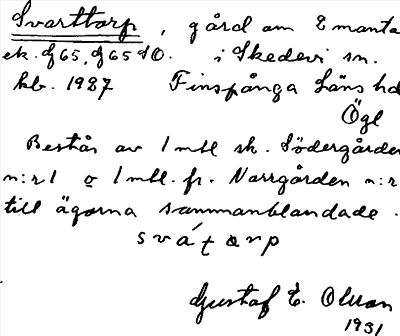 Svarttorp, gård om 2 manta
ek. G65, G65 SO. i Skedevi sn.
kb. 1927 Finspånga Läns hd
Ögl
Består av 1 mtl sk. Södergården
n:r 1 o 1 mtl. fr. Norrgården n:r
till ägorna sammanblandade.
svátorp
Gustaf E. Olsson
1931